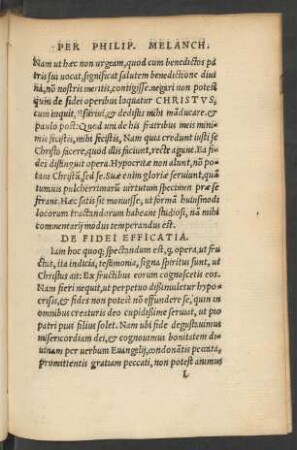 PER PHILIP. MELANCH.
Nam ut hæc non urgeam, quod cum benedictos pa
tris sui uocat, significat salutem benedictione diui
na, nõ nostris meritis, contigisse. negari non potest
quin de fidei operibus loquatur CHRISTVS,
cum inquit, Esuriui, & dedistis mihi mãducare. &
paulo post: Quod uni de his fratribus meis mini-
mis fecistis, mihi fecistis, Nam quis credunt iusti se
Christo facere, quod illis faciunt, recte agunt. Ea fi-
dei distinguit opera. Hypocritæ non alunt, nõ po-
tant Christũ sed se. Suæ enim gloriæ seruiunt, quã
tumuis pulcherrimarũ uirtutum specimen præ se
ferant. Hæc satis sit monuisse, ut formã huiusmodi
locorum tractandorum habeant studiosi, nã mihi
commentarij modus temperandus est.
DE FIDEI EFFICATIA.
Iam hoc quoq; spectandum est, q, opera, ut fru
ctus, ita indicia, testimonia, signa spiritus sunt, ut
Christus ait: Ex fructibus eorum cognoscetis eos.
Nam fieri nequit, ut perpetuo dissimuletur hypo-
crisis, & fides non poteit nõ effundere se, quin in
omnibus creaturis deo cupidissime seruiat, ut pio
patri pius filius solet. Nam ubi fide degustauimus
misericordiam dei, & cognouimus bonitatem di
uinam per uerbum Euangelij, condonãtis peccata,
promittentis gratiam peccati, non potest animus
L